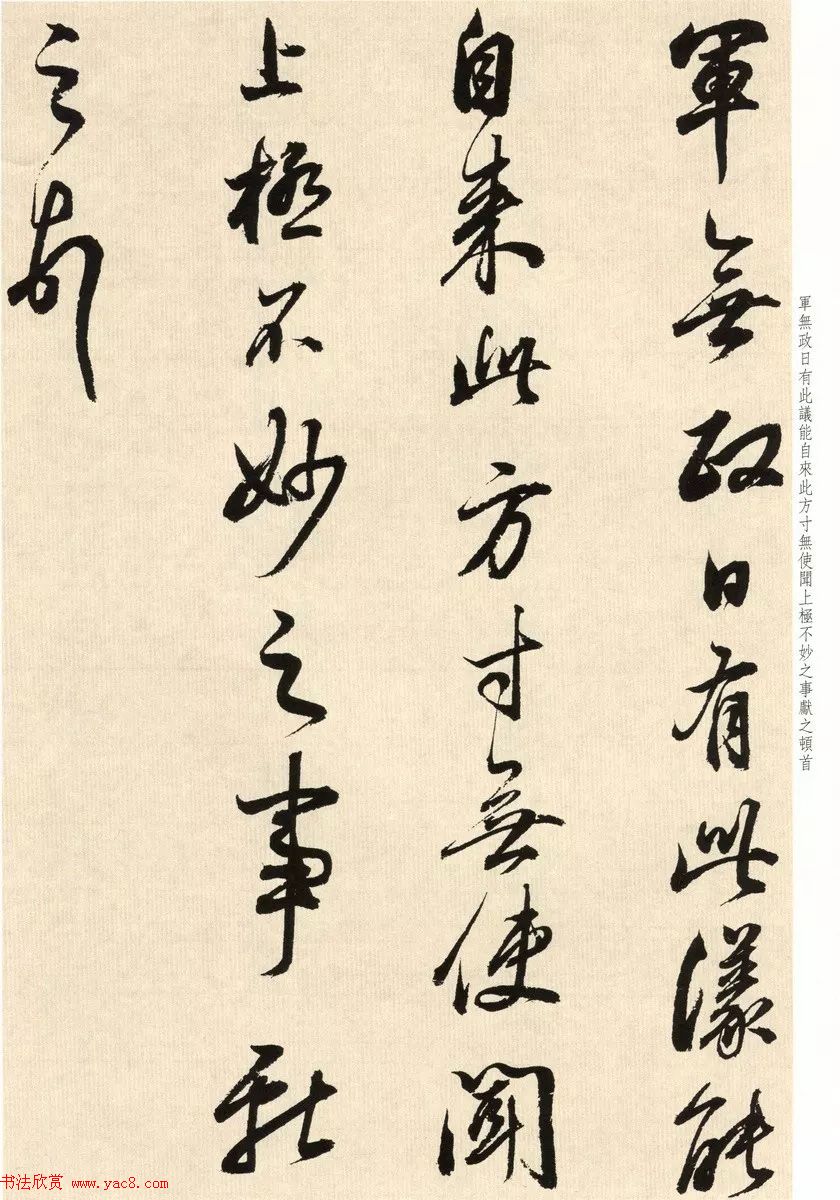 軍無政日有此議能
自來此方寸無使聞
上極不妙之事獻
之頓首
軍無政日有此議能自來此方寸無使聞上極不妙之事獻之頓首
书法欣赏 www.yac8.com